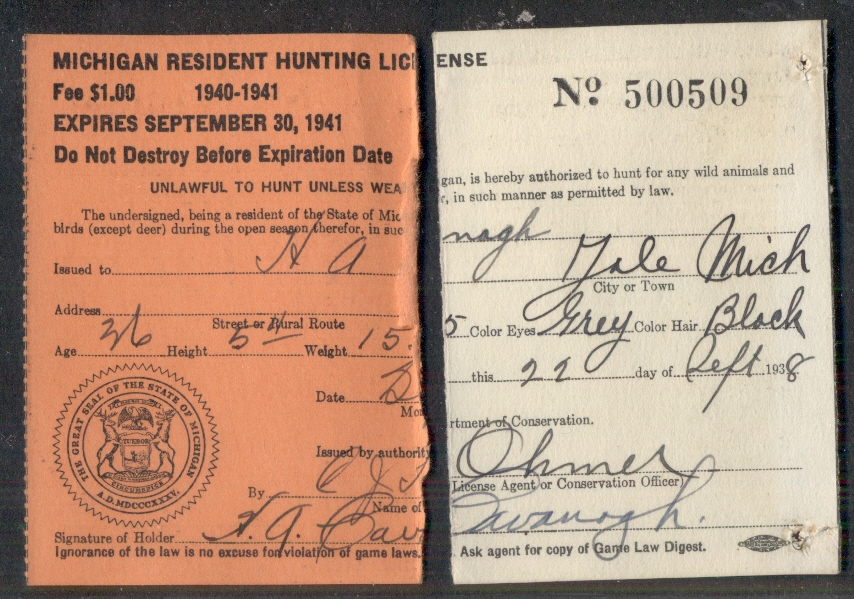 MICHIGAN RESIDENT HUNTING LIC
Fee $1.00 1940-1941
EXPIRES SEPTEMBER 30, 1941
Do Not Destroy Before Expiration Date
UNLAWFUL TO HUNT UNLESS WEA
The undersigned, being a resident of the State of Mic
birds (except deer) during the open season therefor, in suc
Issued to H A
Address
Street or Rural Route
Age 26 Height 5 Weight 15
Date
Mo
Issued by authority
By C J
Name of
THE GREAT SEAL OF THE STATE OF MICHIGAN
TUEBOR
CIRCUMSPICE
A.D. MDCCCXXXV.
Signature of Holder H. A. Cav
Ignorance of the law is no excuse for violation of game laws.
ENSE
No 500509
gan, is hereby authorized to hunt for any wild animals and
r, in such manner as permitted by law.
nagh
Yale Mich
City or Town
5 Color Eyes Grey Color Hair Black
this 22 day of Sept 1938
rtment of Conservation.
Ohmer
License Agent or Conservation Officer)
Cavanagh.
Ask agent for copy of Game Law Digest.